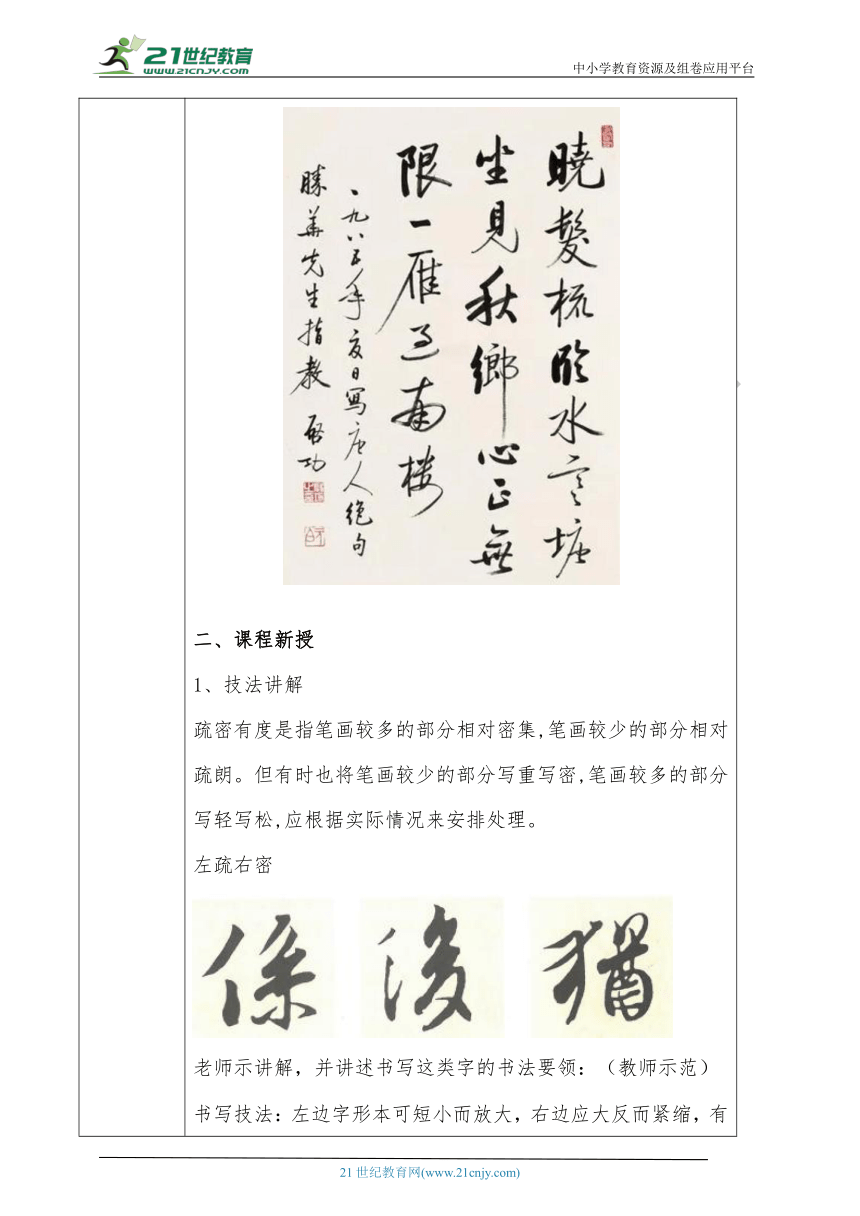 21世纪教育
WWW.21CNJY.COM
中小学教育资源及组卷应用平台
曉髮梳臨水寒塘
坐見秋鄉心正無
限一雁過南楼
一九八五年夏日寫唐人絕句
勝華先生指教 啓功
二、课程新授
1、技法讲解
疏密有度是指笔画较多的部分相对密集,笔画较少的部分相对
疏朗。但有时也将笔画较少的部分写重写密,笔画较多的部分
写轻写松,应根据实际情况来安排处理。
左疏右密
係 後 猶
老师示讲解，并讲述书写这类字的书法要领：（教师示范）
书写技法：左边字形本可短小而放大，右边应大反而紧缩，有
21世纪教育网(www.21cnjy.com)